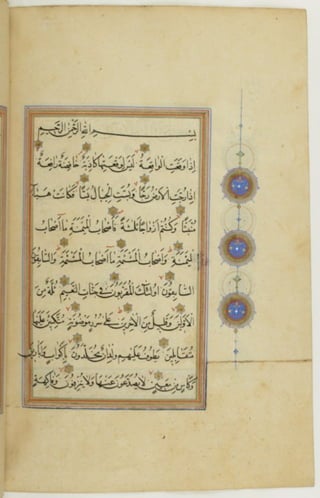 بسم الله الرحمن الرحيم
إذا وقعت الواقعة ليس لوقعتها كاذبة خافضة رافعة
إذا رجت الأرض رجا وبست الجبال بسا فكانت هباء
منبثا وكنتم أزواجا ثلثة فأصحاب الميمنة ما أصحاب
الميمنة وأصحاب المشئمة ما أصحاب المشئمة والسابقون
السابقون أولئك المقربون في جنات النعيم ثلة من
الأولين وقليل من الآخرين على سرر موضونة متكئين عليها
متقابلين يطوف عليهم ولدان مخلدون بأكواب وأباريق
وكأس من معين لا يصدعون عنها ولا ينزفون وفاكهة